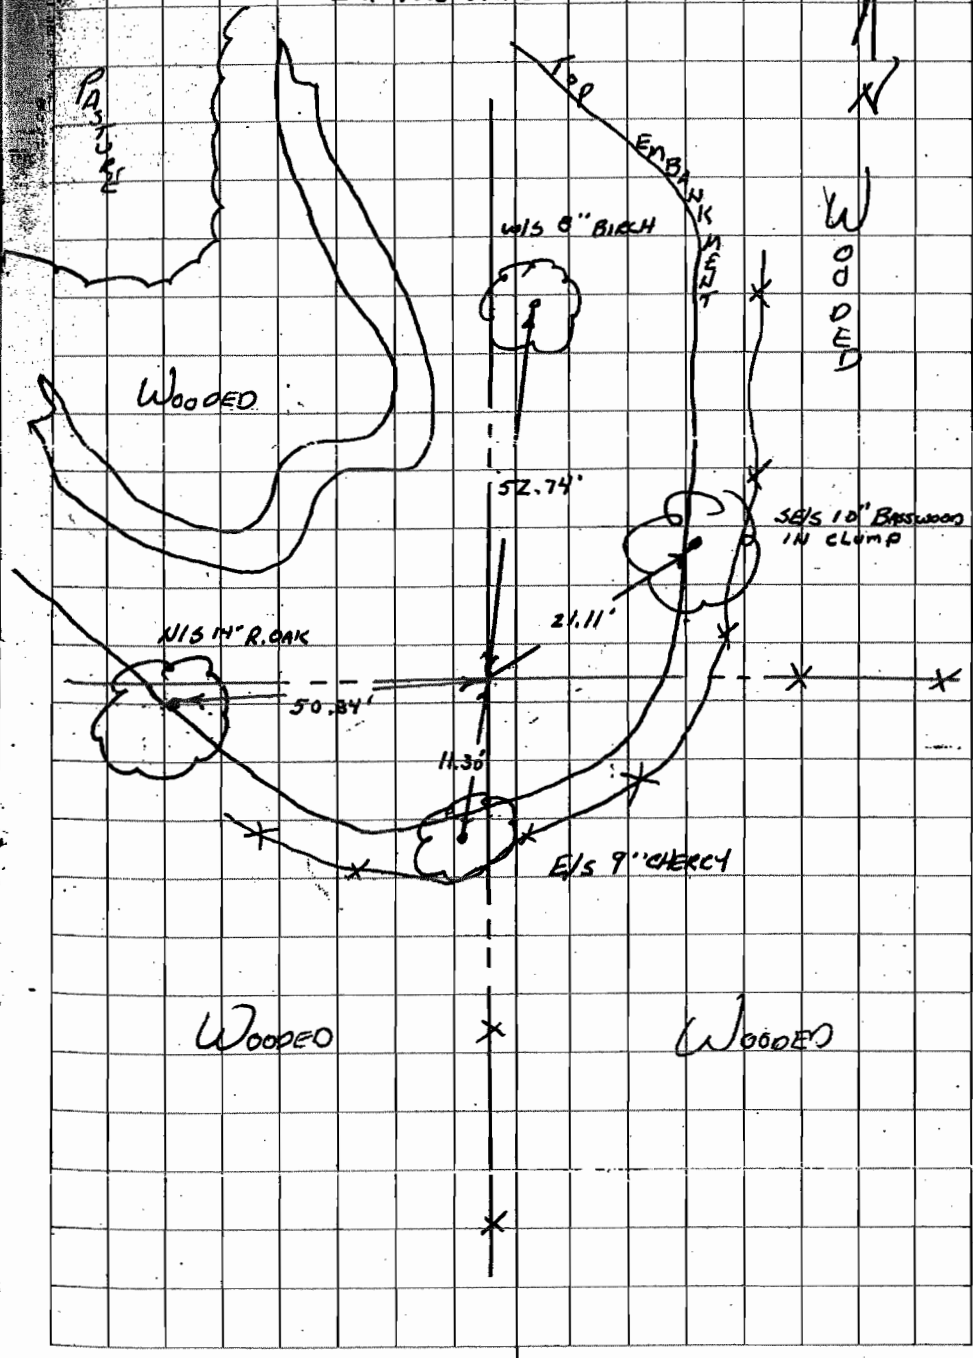 N
PASTURE
TOP EMBANKMENT
WOODED
W/S 8" BIRCH
WOODED
52.74'
SE/S 10" BASSWOOD
IN CLUMP
21.11'
N/S 14" R.OAK
50.84'
11.30'
E/S 9" CHERRY
WOODED
WOODED